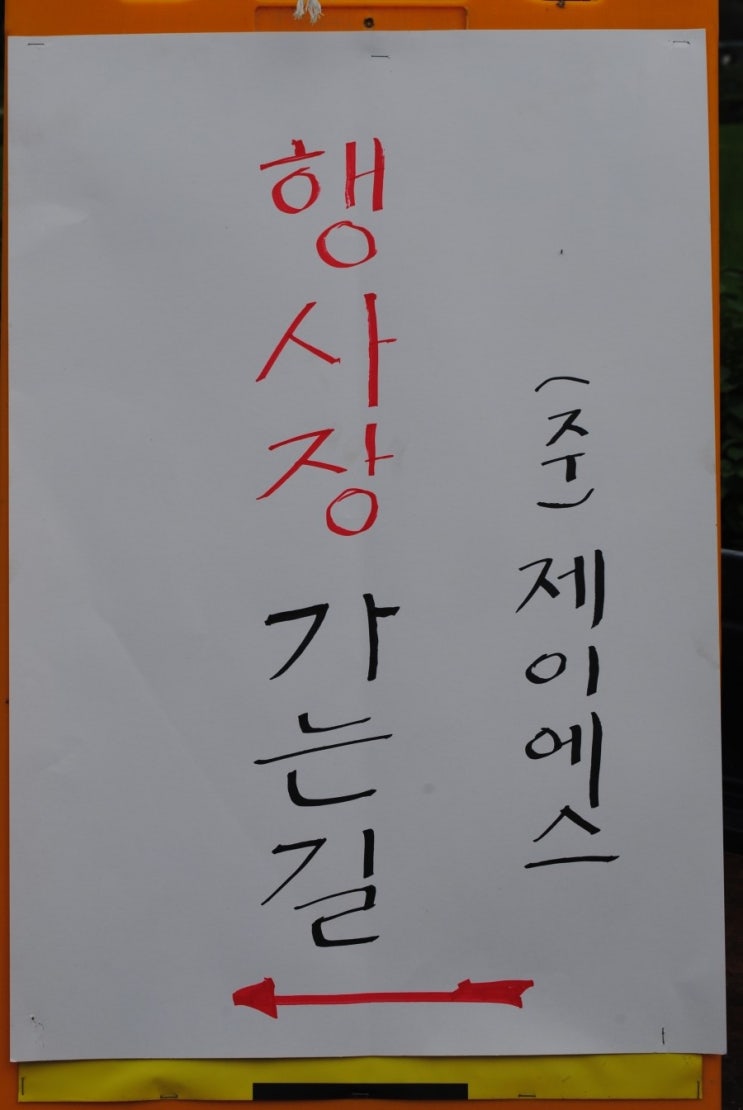 (주) 제이에스
행사장 가는길